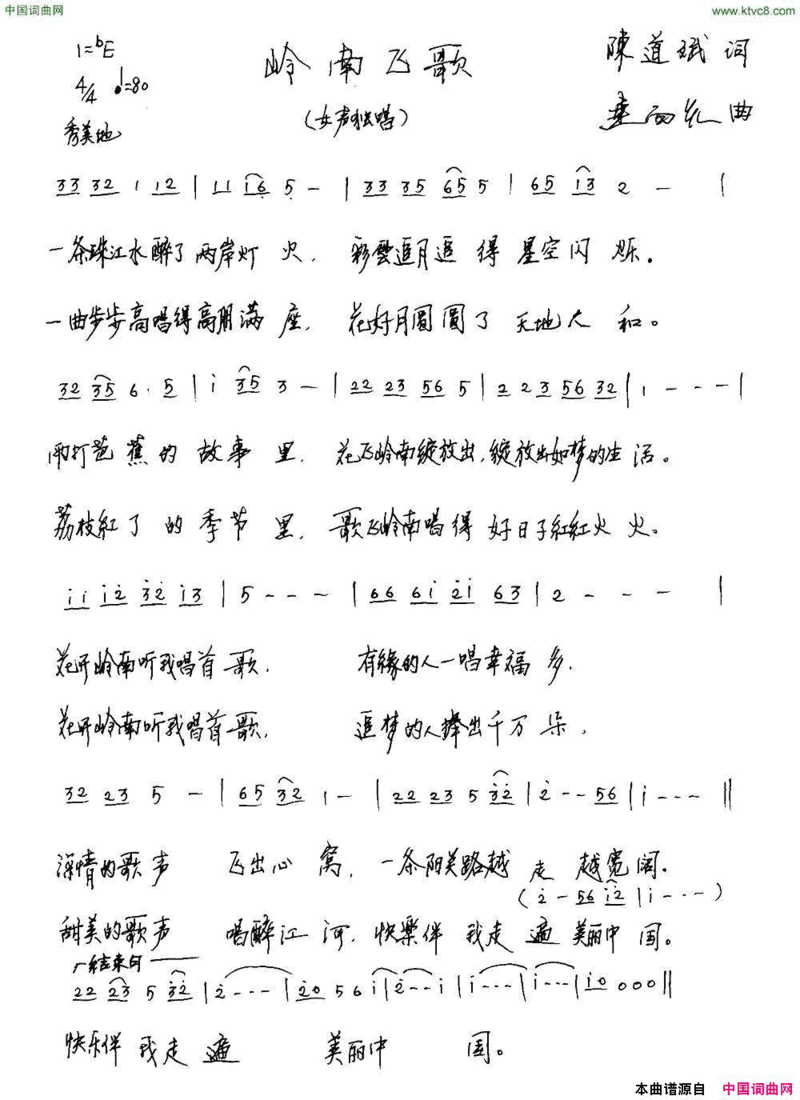 中国词曲网
www.ktvc8.com
1=ᵇE
岭南飞歌
陳道斌 词
4/4 ♩=80
(女声独唱)
曲
秀美地
33 32 1 12 | 11 i6 5 - | 33 35 65 5 | 65 i3 2 - |
一条珠江水醉了两岸灯火, 彩雲追月追得星空闪烁。
一曲步步高唱得高朋满座, 花好月圓圓了天地人和。
32 35 6· 5 | i 35 3 - | 22 23 56 5 | 2 23 56 32 | 1 - - - |
雨打芭蕉的故事里, 花飞岭南绽放出,绽放出如梦的生活。
荔枝紅了的季节里, 歌飞岭南唱得好日子紅紅火火。
ii i2 32 i3 | 5 - - - | 66 6i 2i 63 | 2 - - - |
花开岭南听我唱首歌, 有緣的人一唱幸福多,
花开岭南听我唱首歌, 追梦的人捧出千万朵,
32 23 5 - | 65 32 1 - | 22 23 5 32 | 2 - - 56 | i - - - ||
深情的歌声飞出心窝, 一条阳关路越走越宽阔。
(2 - 56 i2 | i - - - )
甜美的歌声唱醉江河, 快樂伴我走遍美丽中国。
结束句
22 23 5 32 | 2 - - - | 20 5 6 i | 2 - - i | i - - - | i - - - | i0 0 0 0 ||
快乐伴我走遍美丽中国。
本曲谱源自 中国词曲网